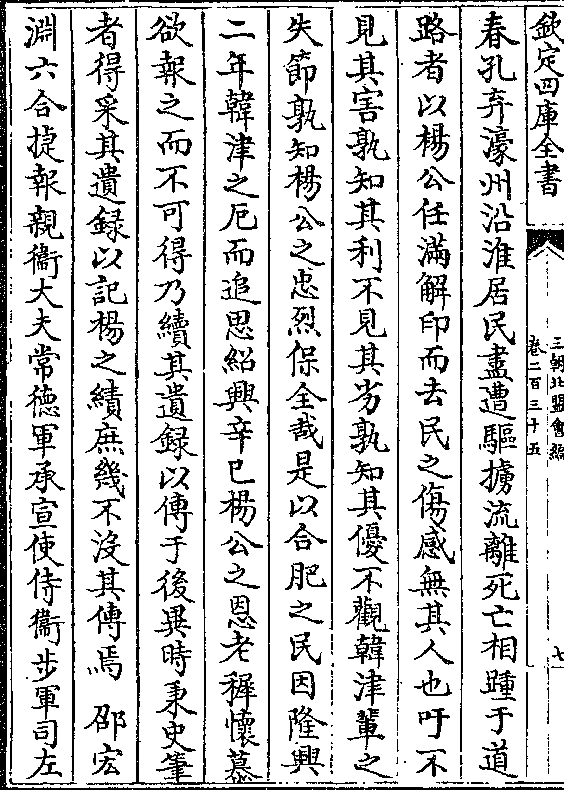 欽定四庫全書
三朝北盟會編
卷二百三十五
七
春孔弃濠州沿淮居民盡遭驅擄流離死亡相踵于道
路者以楊公任滿解印而去民之傷感無其人也吁不
見其害孰知其利不見其劣孰知其優不觀韓津輩之
失節孰知楊公之忠烈保全哉是以合肥之民因隆興
二年韓津之厄而追思紹興辛巳楊公之恩老穉懷慕
欲報之而不可得乃續其遺録以傳于後異時秉史筆
者得采其遺録以記楊之績庶幾不没其傳焉 邵宏
淵六合㨗報親衞大夫常德軍承宣使侍衞步軍司左